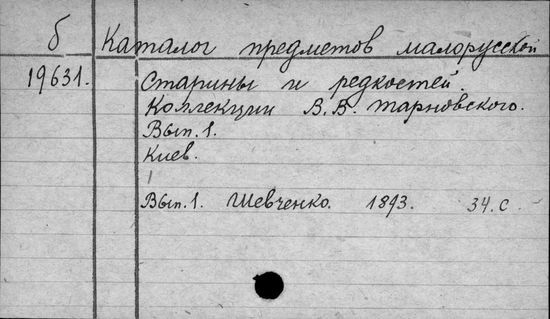 б Каталог предметов малорусской
19631. Старины и редкостей.
Коллекции В.В. Тарновского.
Вып. 1.
Киев.
Вып. 1. Шевченко. 1893. 34. с